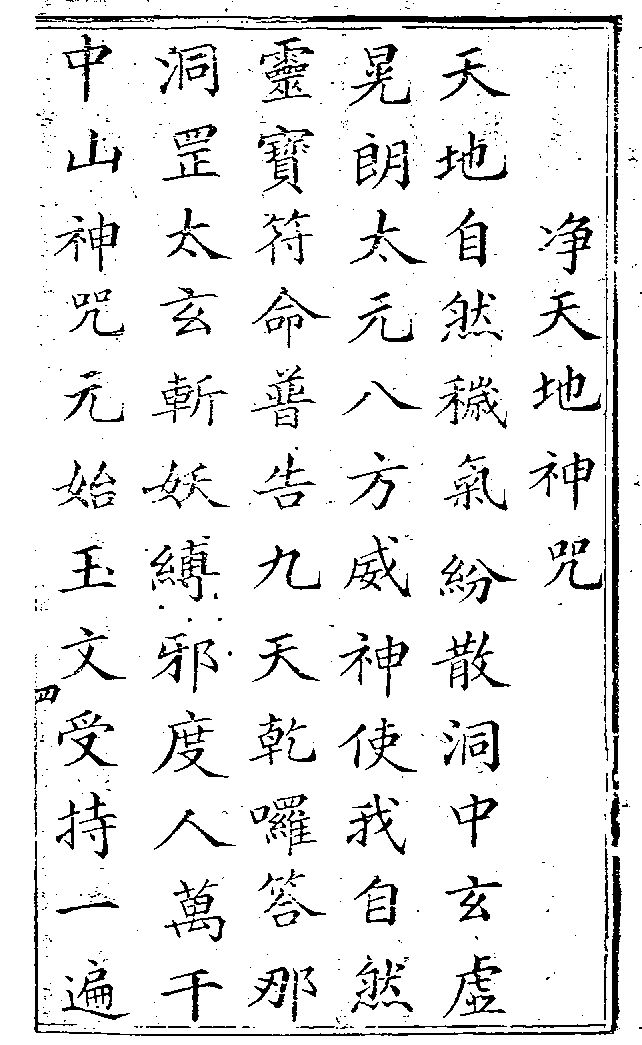 净天地神咒
天地自然穢氣紛散洞中玄虛
晃朗太元八方威神使我自然
靈寶符命普告九天乾囉答那
洞罡太玄斬妖縛邪度人萬千
中山神咒元始玉文受持一遍
四